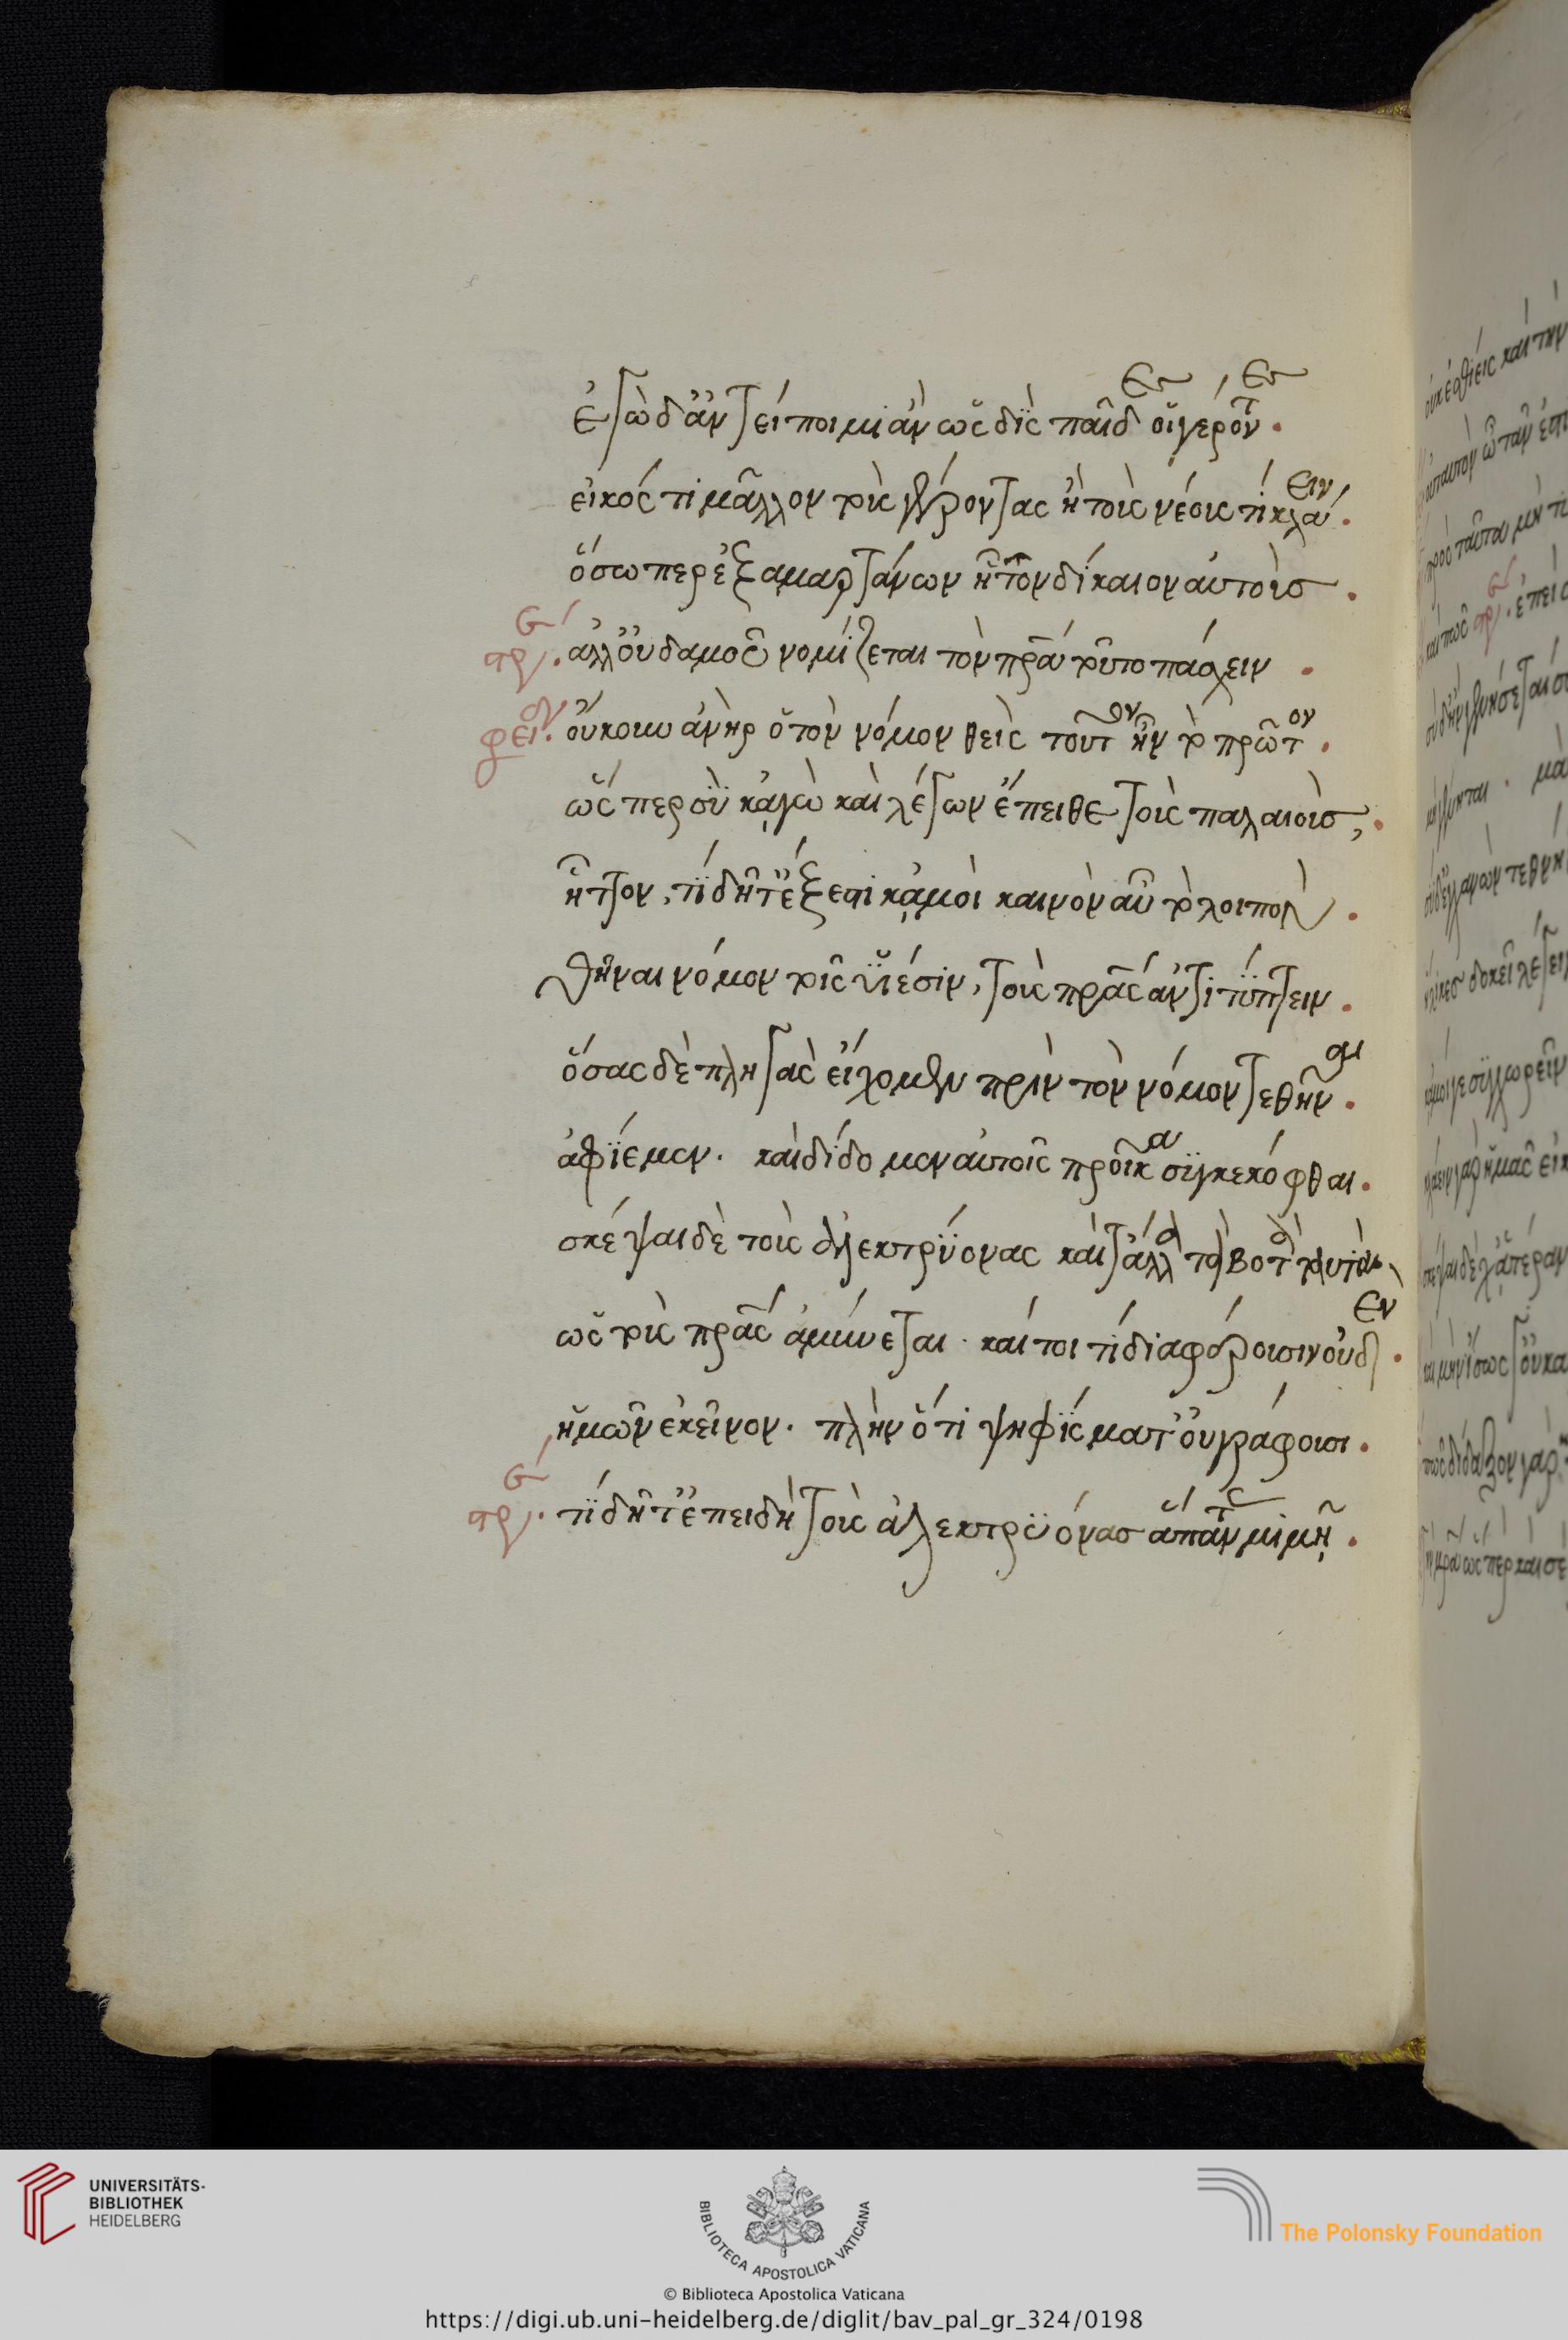 ἐγὼ δ' ἀντείποιμι ἂν ὡς δὶς παῖδες οἱ γέροντες.
εἰκός τι μᾶλλον τοὺς γέροντας ἢ τοὺς νέους τι κλάειν.
ὅσωπερ ἐξαμαρτάνων ἧττον δίκαιον αὐτοὺς.
στρε. ἀλλ' οὐδαμοῦ νομίζεται τὸν πρα τοῦτο πάσχειν.
φειδ. οὔκουν ἀνὴρ ὁ τὸν νόμον θεὶς τοῦτον ἦν τὸ πρῶτον.
ὥσπερ σὺ κἀγὼ καὶ λέγων ἔπειθε τοὺς παλαιοὺς;
ἧττον, τί δῆτ' ἔξεστι κἀμοὶ καινὸν αὖ τὸ λοιπὸν.
θῆναι νόμον τοῖς υἱέσιν, τοὺς πρας ἀντιτύπτειν.
ὅσας δὲ πληγὰς εἴχομεν πρὶν τὸν νόμον τεθῆναι.
ἀφίεμεν. καὶ δίδομεν αὐτοῖς προῖκα συγκεκόφθαι.
σκέψαι δὲ τοὺς ἀλεκτρυόνας καὶ τἄλλα τὰ βοτὰ
ὡς τοὺς πρας ἀμύνεται. καίτοι τί διαφέρουσιν οὐδὲν.
ἡμῶν ἐκεῖνον. πλὴν ὅτι ψηφίσματ' οὐ γράφουσι.
στρε. τί δῆτ' ἐπειδὴ τοὺς ἀλεκτρυόνας ἅπαντα μιμῇ.
UNIVERSITÄTS-
BIBLIOTHEK
HEIDELBERG
BIBLIOTECA APOSTOLICA VATICANA
The Polonsky Foundation
© Biblioteca Apostolica Vaticana
https://digi.ub.uni-heidelberg.de/diglit/bav_pal_gr_324/0198